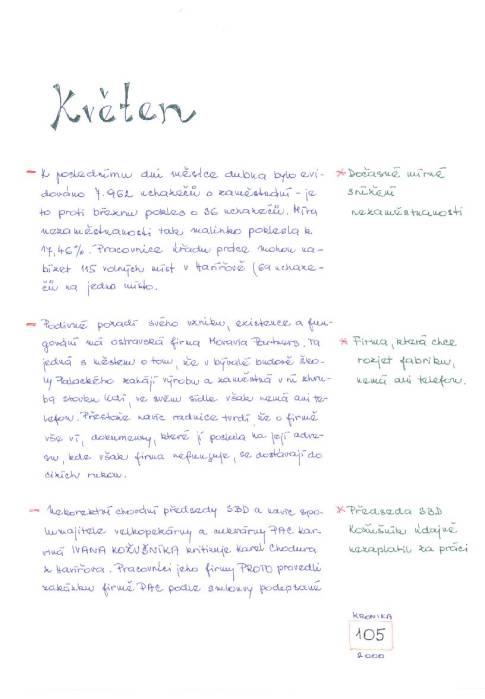 Květen
- K poslednímu dni měsíce dubna bylo evi-
dováno 7.962 uchazečů o zaměstnání - je
to proti březnu pokles o 36 uchazečů. Míra
nezaměstnanosti tak malinko poklesla k
17,46%. Pracovnice Úřadu práce mohou na-
bízet 115 volných míst v Havířově (69 uchaze-
čů na jedno místo.
* Dočasné mírné
snížení
nezaměstnanosti
- Podivné pozadí svého vzniku, existence a fun-
gování má ostravská firma Moravia Partners. Ta
jedná s městem o tom, že v bývalé budově ško-
ly Palackého zahájí výrobu a zaměstná v ní zhru-
ba stovku lidí, ve svém sídle však nemá ani te-
lefon. Přestože navíc radnice tvrdí, že o firmě
vše ví, dokumenty, které jí poslala na její adre-
su, kde však firma nefunguje, se dostávají do
cizích rukou.
* Firma, která chce
rozjet fabriku,
nemá ani telefon.
- Nekorektní chování předsedy SBD a navíc spo-
lumajitele velkopekárny a cukrárny PAC Kar-
viná IVANA KOŽUŠNÍKA kritizuje Karel Chodura
z Havířova. Pracovníci jeho firmy PROTO provedli
zakázku firmě PAC podle smlouvy podepsané
* Předseda SBD
Kožušník údajně
nezaplatil za práci
KRONIKA
105
2000